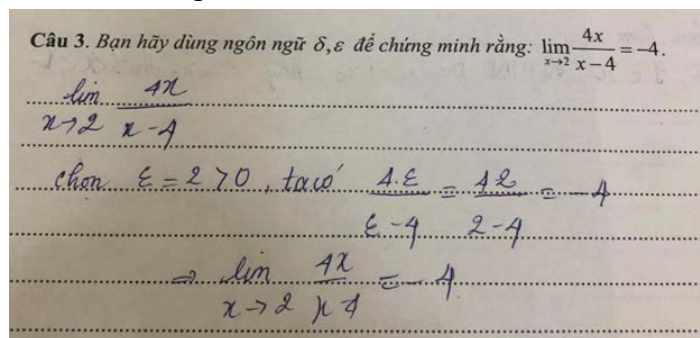 Câu 3. Bạn hãy dùng ngôn ngữ δ,ε để chứng minh rằng: lim x→2 4x/(x−4) = −4.
lim x→2 4x/(x-4)
chọn ε = 2 > 0, ta có 4.ε/(ε-4) = 4.2/(2-4) = -4
⇒ lim x→2 4x/(x-4) = -4